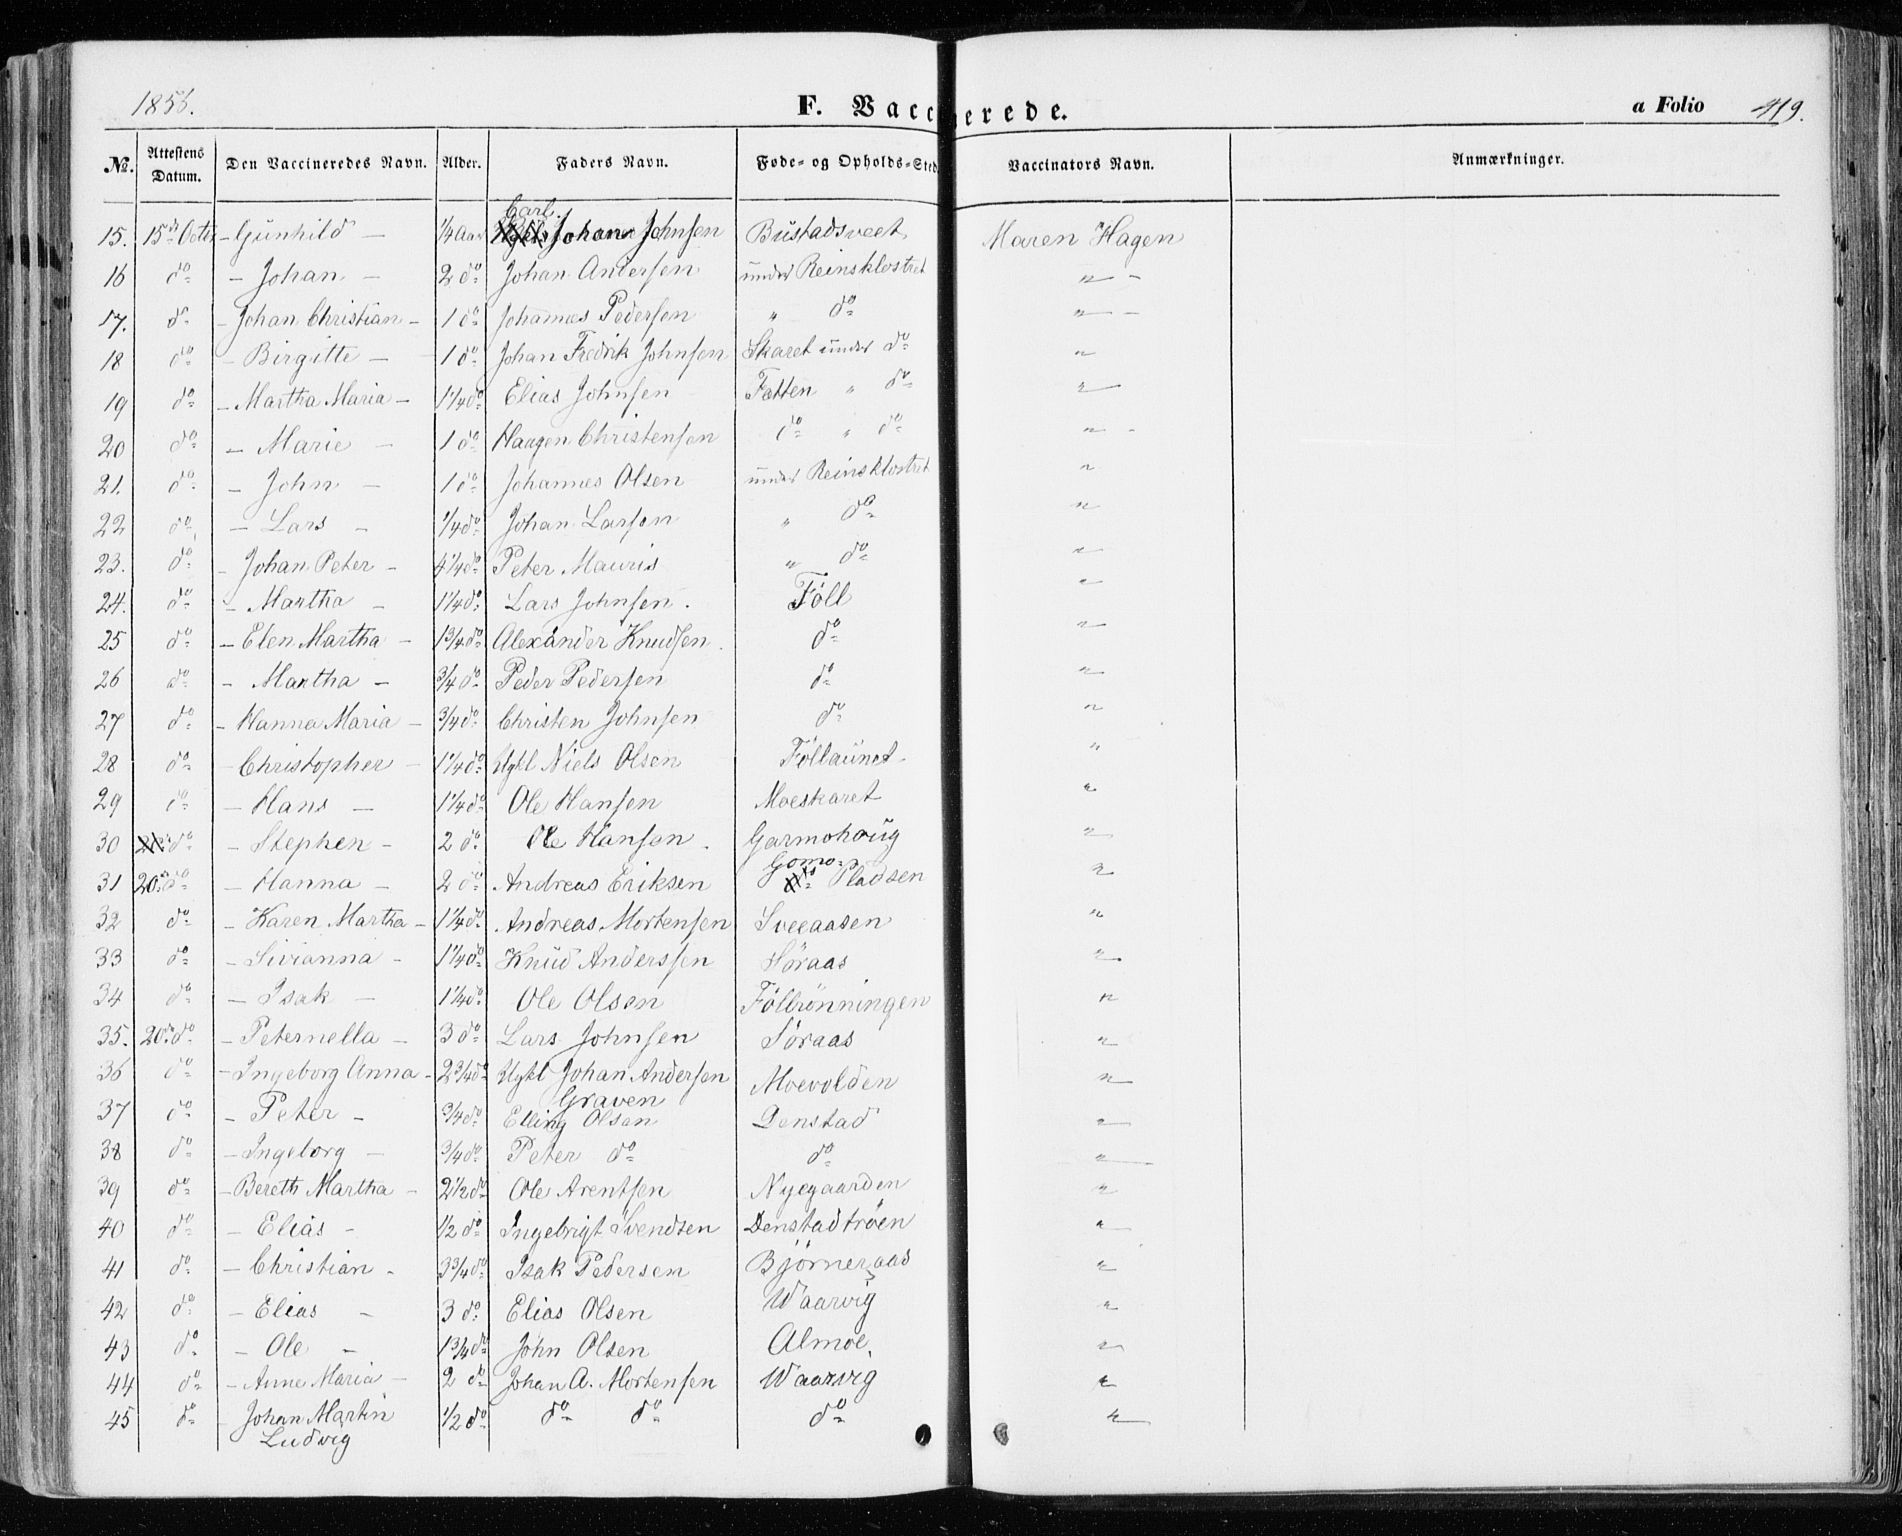 1856. F. Vaccinerede. a Folio 419.
No. Attestens Datum. Den Vaccineredes Navn. Alder. Faders Navn. Føde- og Opholds-Sted Vaccinators Navn. Anmærkninger.
Carl
15. 15de Octbr - Gunhild - 1/4 Aar Johan Johnsen Bustadsveet Maren Hagen
16 do - Johan - 2 do Johan Andersen under Reinsklostret " -
17. do - Johan Christian - 1 do Johannes Pedersen " do " -
18 do - Birgitte - 1 do Johan Fredrik Johnsen Skaret under do "
19 do - Martha Maria - 1 1/4 do Elias Johnsen Fatten " do "
20 do - Marie - 1 do Haagen Christensen do " do " -
21. do - John - 1 do Johannes Olsen under Reinsklostret "
22 do - Lars - 1/4 do Johan Larsen " do "
23. do - Johan Peter - 4 1/4 do Peter Mauris " do "
24. do - Martha - 1 1/4 do Lars Johnsen. Föll "
25 do - Elen Martha - 1 3/4 do Alexander Knudsen. do "
26 do - Martha - 3/4 do Peder Pedersen do "
27 do - Hanna Maria - 3/4 do Christen Johnsen do "
28 do - Christopher - 1 1/4 do Ugkl Niels Olsen Föllaunet "
29 do - Hans - 1 1/4 do Ole Hansen Moeskaret "
30 do - Stephen - 2 do Ole Hansen. Garmohoug "
31 20de do - Hanna - 2 do Andreas Eriksen Gomo Pladsen "
32 do - Karen Martha - 1 1/4 do Andreas Mortensen Sveeaasen "
33 do - Sivianna - 1 1/4 do Knud Anderssen Høraas "
34 do - Isak - 1 1/4 do Ole Olsen Föllrönningen "
35. 20de do - Peternella - 3 do Lars Johnsen Søraas "
36 do - Ingeborg Anna - 2 3/4 do Ugkl Johan Andersen Graven Moevolden "
37 do - Peter - 3/4 do Elling Olsen Denstad "
38 do - Ingeborg - 3/4 do Peter do do "
39 do - Bereth Martha - 2 1/2 do Ole Arentsen Nyegaarden "
40 do - Elias - 1/2 do Ingebrigt Svendsen Denstadtröen "
41 do - Christian - 3 3/4 do Isak Pedersen Bjørneraas "
42 do - Elias - 3 do Elias Olsen Waarvig "
43 do - Ole - 1 3/4 do John Olsen Almoe. "
44 do - Anne Maria - 2 do Johan A. Mortensen Waarvig "
45 do - Johan Martin 1/2 do do do do "
Ludvig